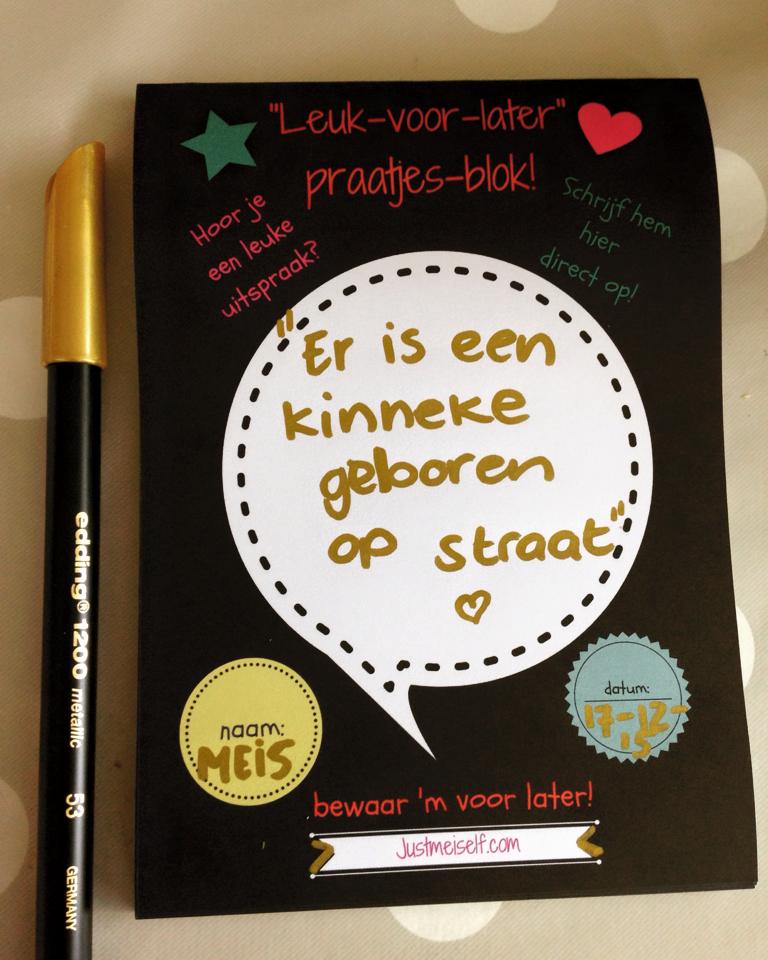 "Leuk-voor-later"
praatjes-blok!
Hoor je
een leuke
uitspraak?
Schrijf hem
hier
direct op!
"Er is een
kinneke
geboren
op straat"
naam:
MEiS
datum:
17-12-
15
bewaar 'm voor later!
Justmeiself.com
edding® 1200 metallic 53 GERMANY